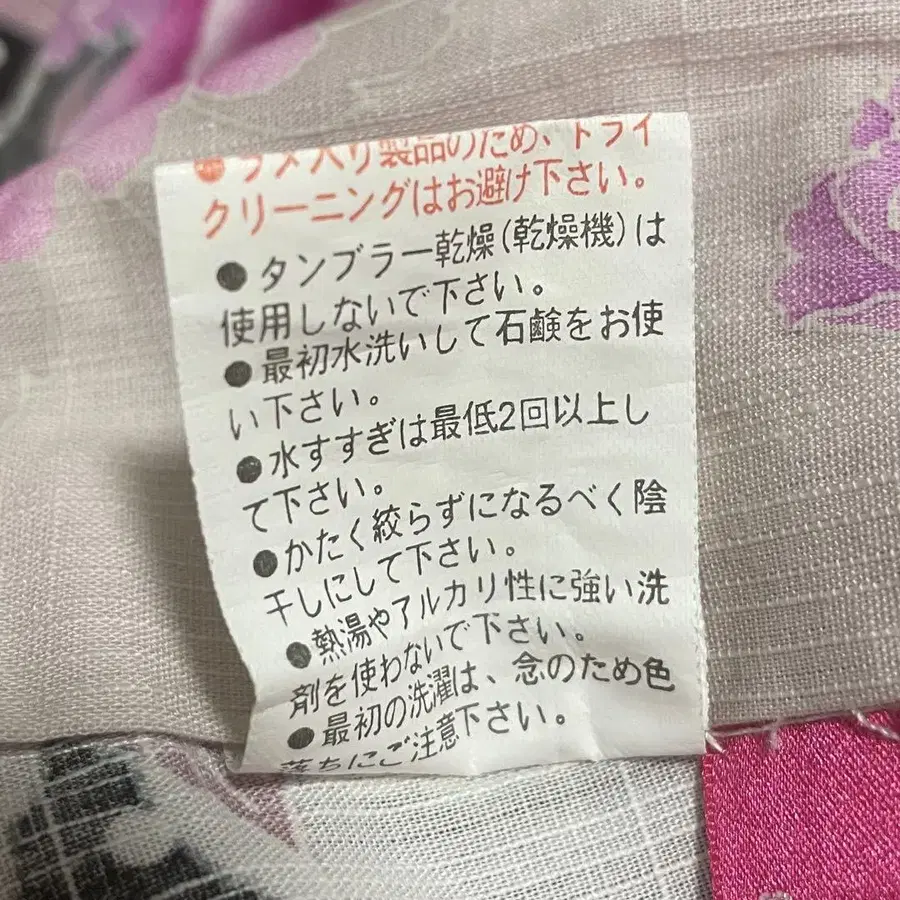 ●ラメ入り製品のため、ドライ
クリーニングはお避け下さい。
●タンブラー乾燥(乾燥機)は
使用しないで下さい。
●最初水洗いして石鹸をお使
い下さい。
●水すすぎは最低2回以上し
て下さい。
●かたく絞らずになるべく陰
干しにして下さい。
●熱湯やアルカリ性に強い洗
剤を使わないで下さい。
●最初の洗濯は、念のため色
落ちにご注意下さい。